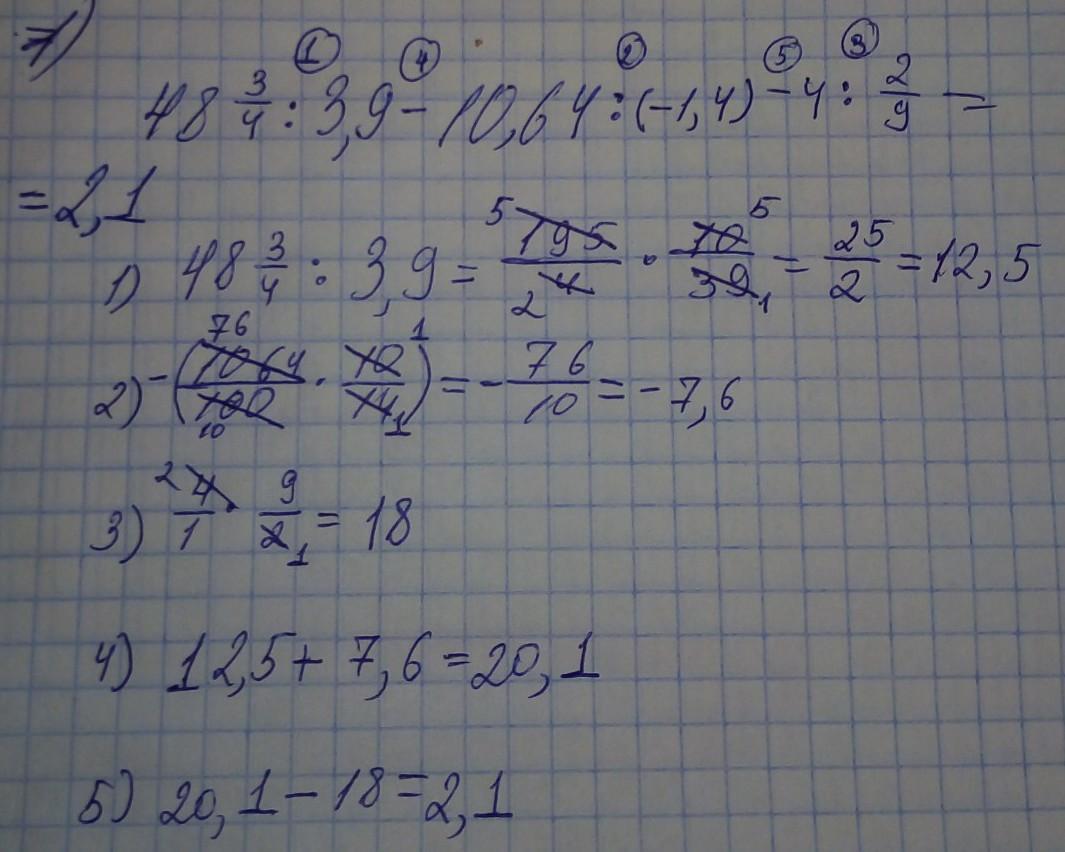 7)
① ④ ② ⑤ ③
48 3/4 : 3,9 - 10,64 : (-1,4) - 4 : 2/9 =
= 2,1
1) 48 3/4 : 3,9 = 5 195/4 2 · 10 5/39 1 = 25/2 = 12,5
2) -(76 1064/100 10 · 10 1/14 1) = - 76/10 = - 7,6
3) 2 4/1 · 9/2 1 = 18
4) 12,5 + 7,6 = 20,1
5) 20,1 - 18 = 2,1